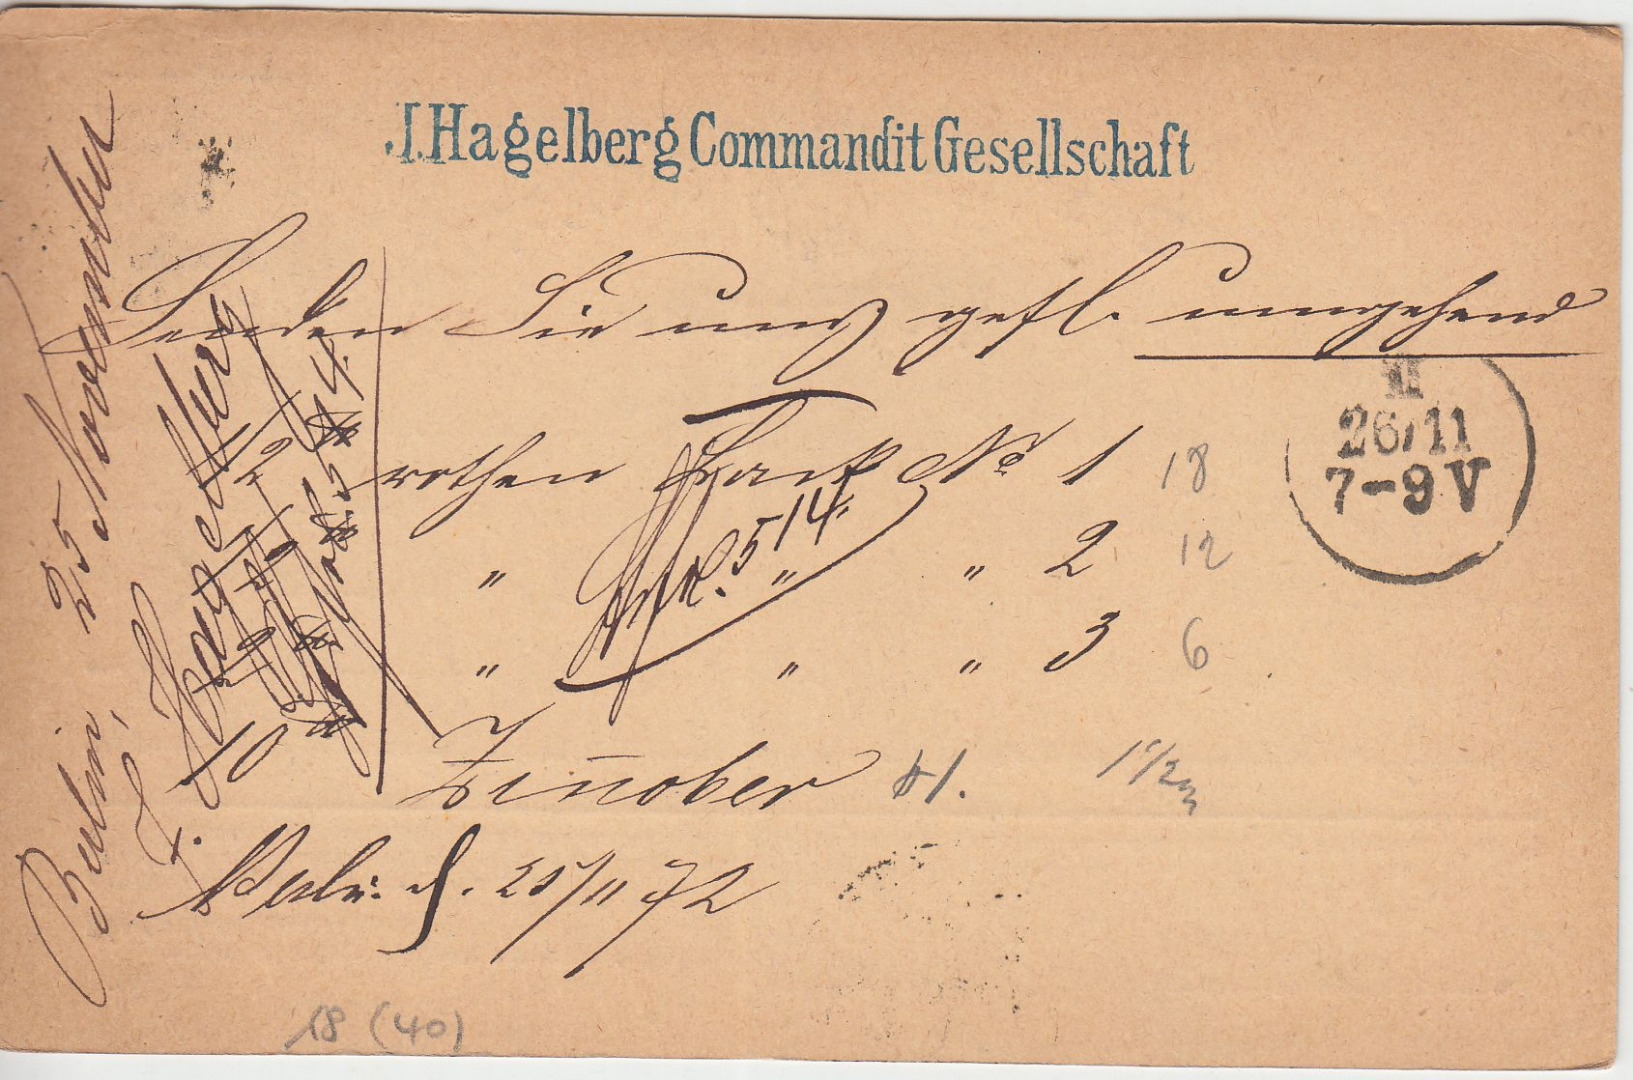 J. Hagelberg Commandit Gesellschaft
Senden Sie uns gefl. umgehend
rothen Lack No 1 18
" " " 2 12
" " " 3 6
10 Zinnober 1.
Berlin d. 25/11 72
III
26/11
7-9 V
Berlin, 25 November
Hagelberg
514.
18 (40)